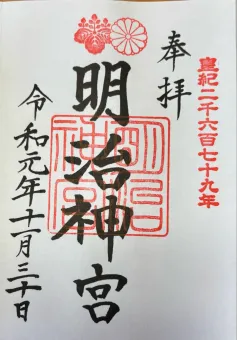 皇紀二千六百七十九年
奉拝
明治神宮
明治神宮
令和元年十一月三十日